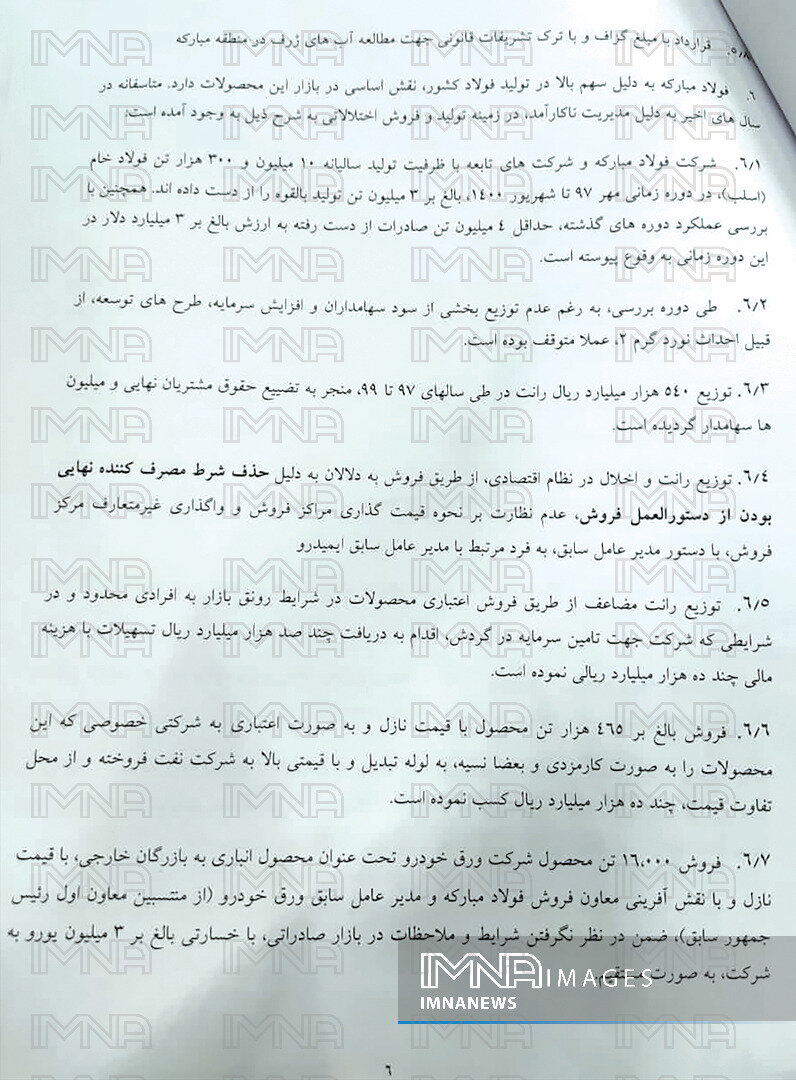 ۵/۸. قرارداد با مبلغ گزاف و با ترک تشریفات قانونی جهت مطالعه آب های ژرف در منطقه مبارکه
۶. فولاد مبارکه به دلیل سهم بالا در تولید فولاد کشور، نقش اساسی در بازار این محصولات دارد. متاسفانه در
سال های اخیر به دلیل مدیریت ناکارآمد، در زمینه تولید و فروش اختلالاتی به شرح ذیل به وجود آمده است:
۶/۱. شرکت فولاد مبارکه و شرکت های تابعه با ظرفیت تولید سالیانه ۱۰ میلیون و ۳۰۰ هزار تن فولاد خام
(اسلب)، در دوره زمانی مهر ۹۷ تا شهریور ۱۴۰۰، بالغ بر ۳ میلیون تن تولید بالقوه را از دست داده اند. همچنین با
بررسی عملکرد دوره های گذشته، حداقل ۴ میلیون تن صادرات از دست رفته به ارزش بالغ بر ۳ میلیارد دلار در
این دوره زمانی به وقوع پیوسته است.
۶/۲. طی دوره بررسی، به رغم عدم توزیع بخشی از سود سهامداران و افزایش سرمایه، طرح های توسعه، از
قبیل احداث نورد گرم ۲، عملا متوقف بوده است.
۶/۳. توزیع ۵۴۰ هزار میلیارد ریال رانت در طی سالهای ۹۷ تا ۹۹، منجر به تضییع حقوق مشتریان نهایی و میلیون
ها سهامدار گردیده است.
۶/۴. توزیع رانت و اخلال در نظام اقتصادی، از طریق فروش به دلالان به دلیل حذف شرط مصرف کننده نهایی
بودن از دستورالعمل فروش، عدم نظارت بر نحوه قیمت گذاری مراکز فروش و واگذاری غیرمتعارف مرکز
فروش، با دستور مدیر عامل سابق، به فرد مرتبط با مدیر عامل سابق ایمیدرو
۶/۵. توزیع رانت مضاعف از طریق فروش اعتباری محصولات در شرایط رونق بازار به افرادی محدود و در
شرایطی که شرکت جهت تامین سرمایه در گردش، اقدام به دریافت چند صد هزار میلیارد ریال تسهیلات با هزینه
مالی چند ده هزار میلیارد ریالی نموده است.
۶/۶. فروش بالغ بر ۴۶۵ هزار تن محصول با قیمت نازل و به صورت اعتباری به شرکتی خصوصی که این
محصولات را به صورت کارمزدی و بعضا نسیه، به لوله تبدیل و با قیمتی بالا به شرکت نفت فروخته و از محل
تفاوت قیمت، چند ده هزار میلیارد ریال کسب نموده است.
۶/۷. فروش ۱۶،۰۰۰ تن محصول شرکت ورق خودرو تحت عنوان محصول انباری به بازرگان خارجی، با قیمت
نازل و با نقش آفرینی معاون فروش فولاد مبارکه و مدیر عامل سابق ورق خودرو (از منتسبین معاون اول رئیس
جمهور سابق)، ضمن در نظر نگرفتن شرایط و ملاحظات در بازار صادراتی، با خسارتی بالغ بر ۳ میلیون یورو به
شرکت، به صورت مستقیم.
IMNA IMAGES
IMNANEWS
۶